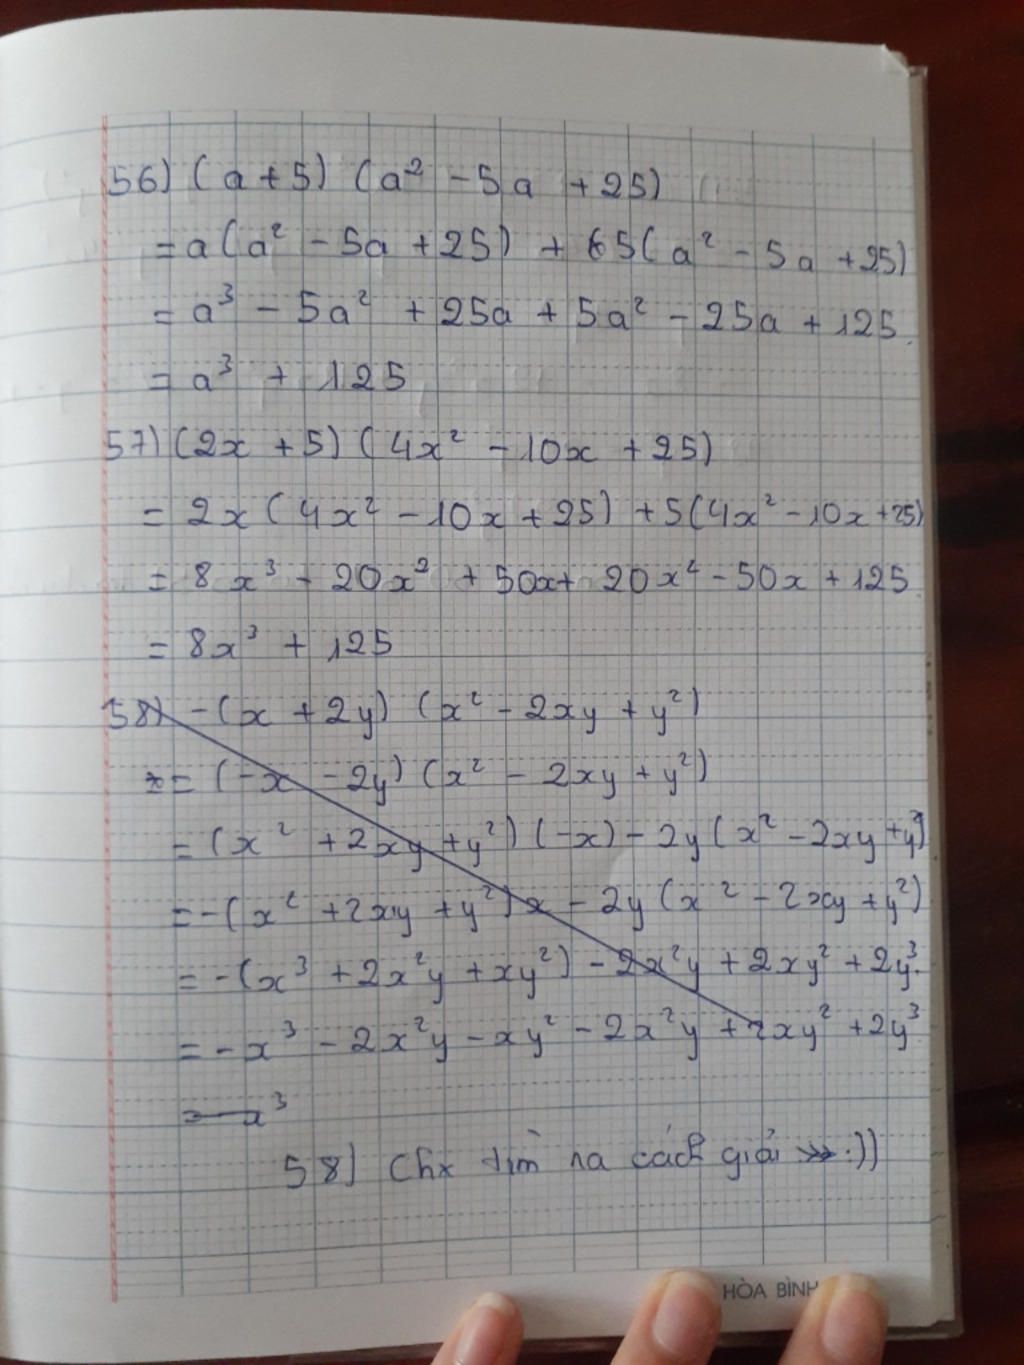 56) (a + 5) (a² - 5a + 25)
= a (a² - 5a + 25) + 65(a² - 5a + 25)
= a³ - 5a² + 25a + 5a² - 25a + 125.
= a³ + 125
57) (2x + 5) (4x² - 10x + 25)
= 2x (4x² - 10x + 25) + 5(4x² - 10x + 25)
= 8x³ - 20x² + 50x + 20x² - 50x + 125
= 8x³ + 125
58) -(x + 2y) (x² - 2xy + y²)
= (-x - 2y) (x² - 2xy + y²)
= (x² + 2xy + y²) (-x) - 2y (x² - 2xy + y²)
= -(x² + 2xy + y²) x - 2y (x² - 2xy + y²)
= -(x³ + 2x²y + xy²) - 2x²y + 2xy² + 2y³.
= -x³ - 2x²y - xy² - 2x²y + 2xy² + 2y³
= -x³
58) Chx tìm ra cách giải :))
HÒA BÌNH